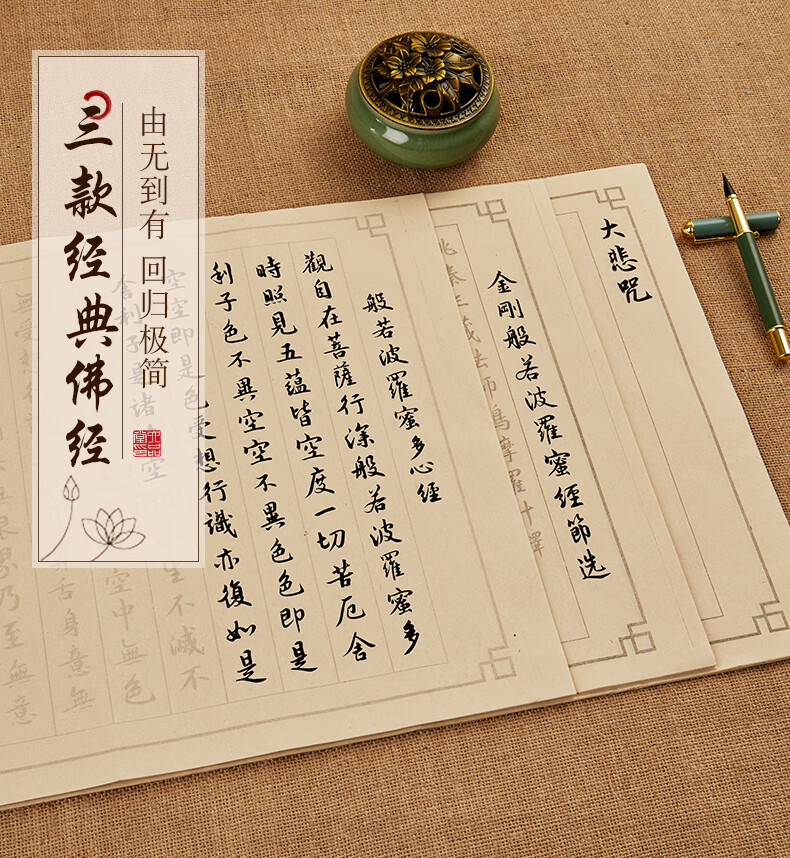 三款经典佛经
由无到有 回归极简
大悲咒
金剛般若波羅蜜經節选
姚秦三藏法師鳩摩羅什譯
般若波羅蜜多心經
觀自在菩薩行深般若波羅蜜多
時照見五蘊皆空度一切苦厄舍
利子色不異空空不異色色即是
空空即是色受想行識亦復如是
舍利子是諸 空 生不滅不
空中無色
無受想 舌身意無
界乃至無意